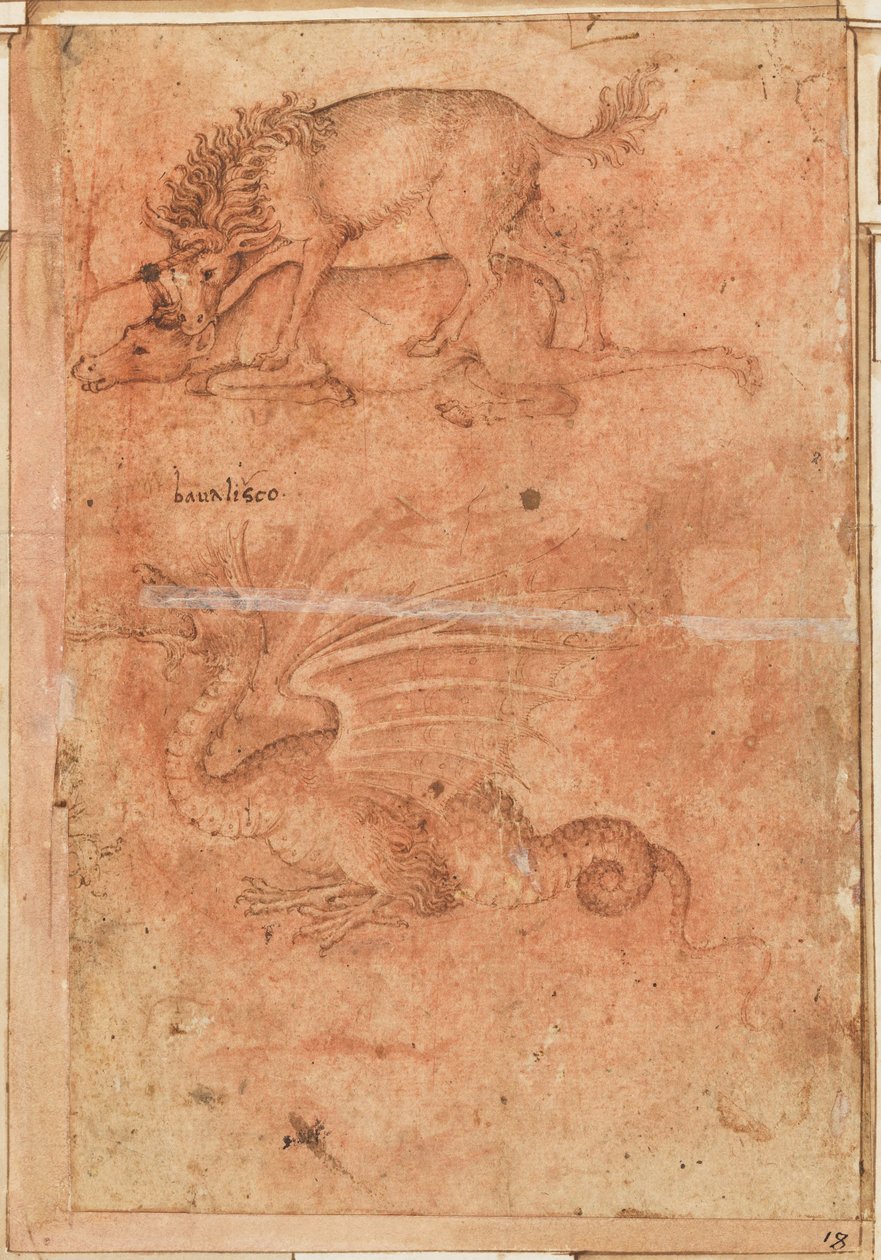 baualisco.
18